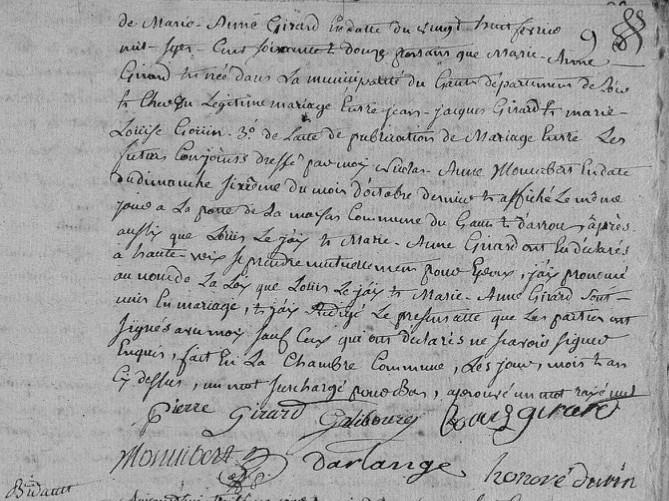 de Marie-Anne Girard En datte du vingt huit fevrier
mil-Sept-Cent soixante & douze portant que Marie-Anne
Girard Est née dans La municipalité du Gault département de Loir
& Cher du Légitime mariage Entre jean-jacques Girard & marie-
Louise Gouin. 3° de L'acte de publication de Mariage Entre Les
futurs Conjoints dressé par moy Nicolas Anne Monvibert En date
du dimanche sixième du mois d'octobre dernier & affiché Le même
jour a La porte de La maison Commune du Gault & d'arrou, après
aussy que Louis Le jay & Marie-Anne Girard ont Eu déclarés
a haute voix se prendre mutuellement pour Epoux, j'ay prononcé
au nom de La Loy que Louis Le jay & Marie-Anne Girard Sont
unis En mariage, & j'ay Rédigé Le present acte que Les parties ont
signés avec moy sauf Ceux qui ont déclarés ne savoir signer
Enquis, fait En La Chambre Commune, Les jour, mois & an
Cy dessus, un mot surchargé pour bon, approuvé un mot rayé nul
Pierre Girard Galibourg girard
Monvibert darlange honoré durin
9